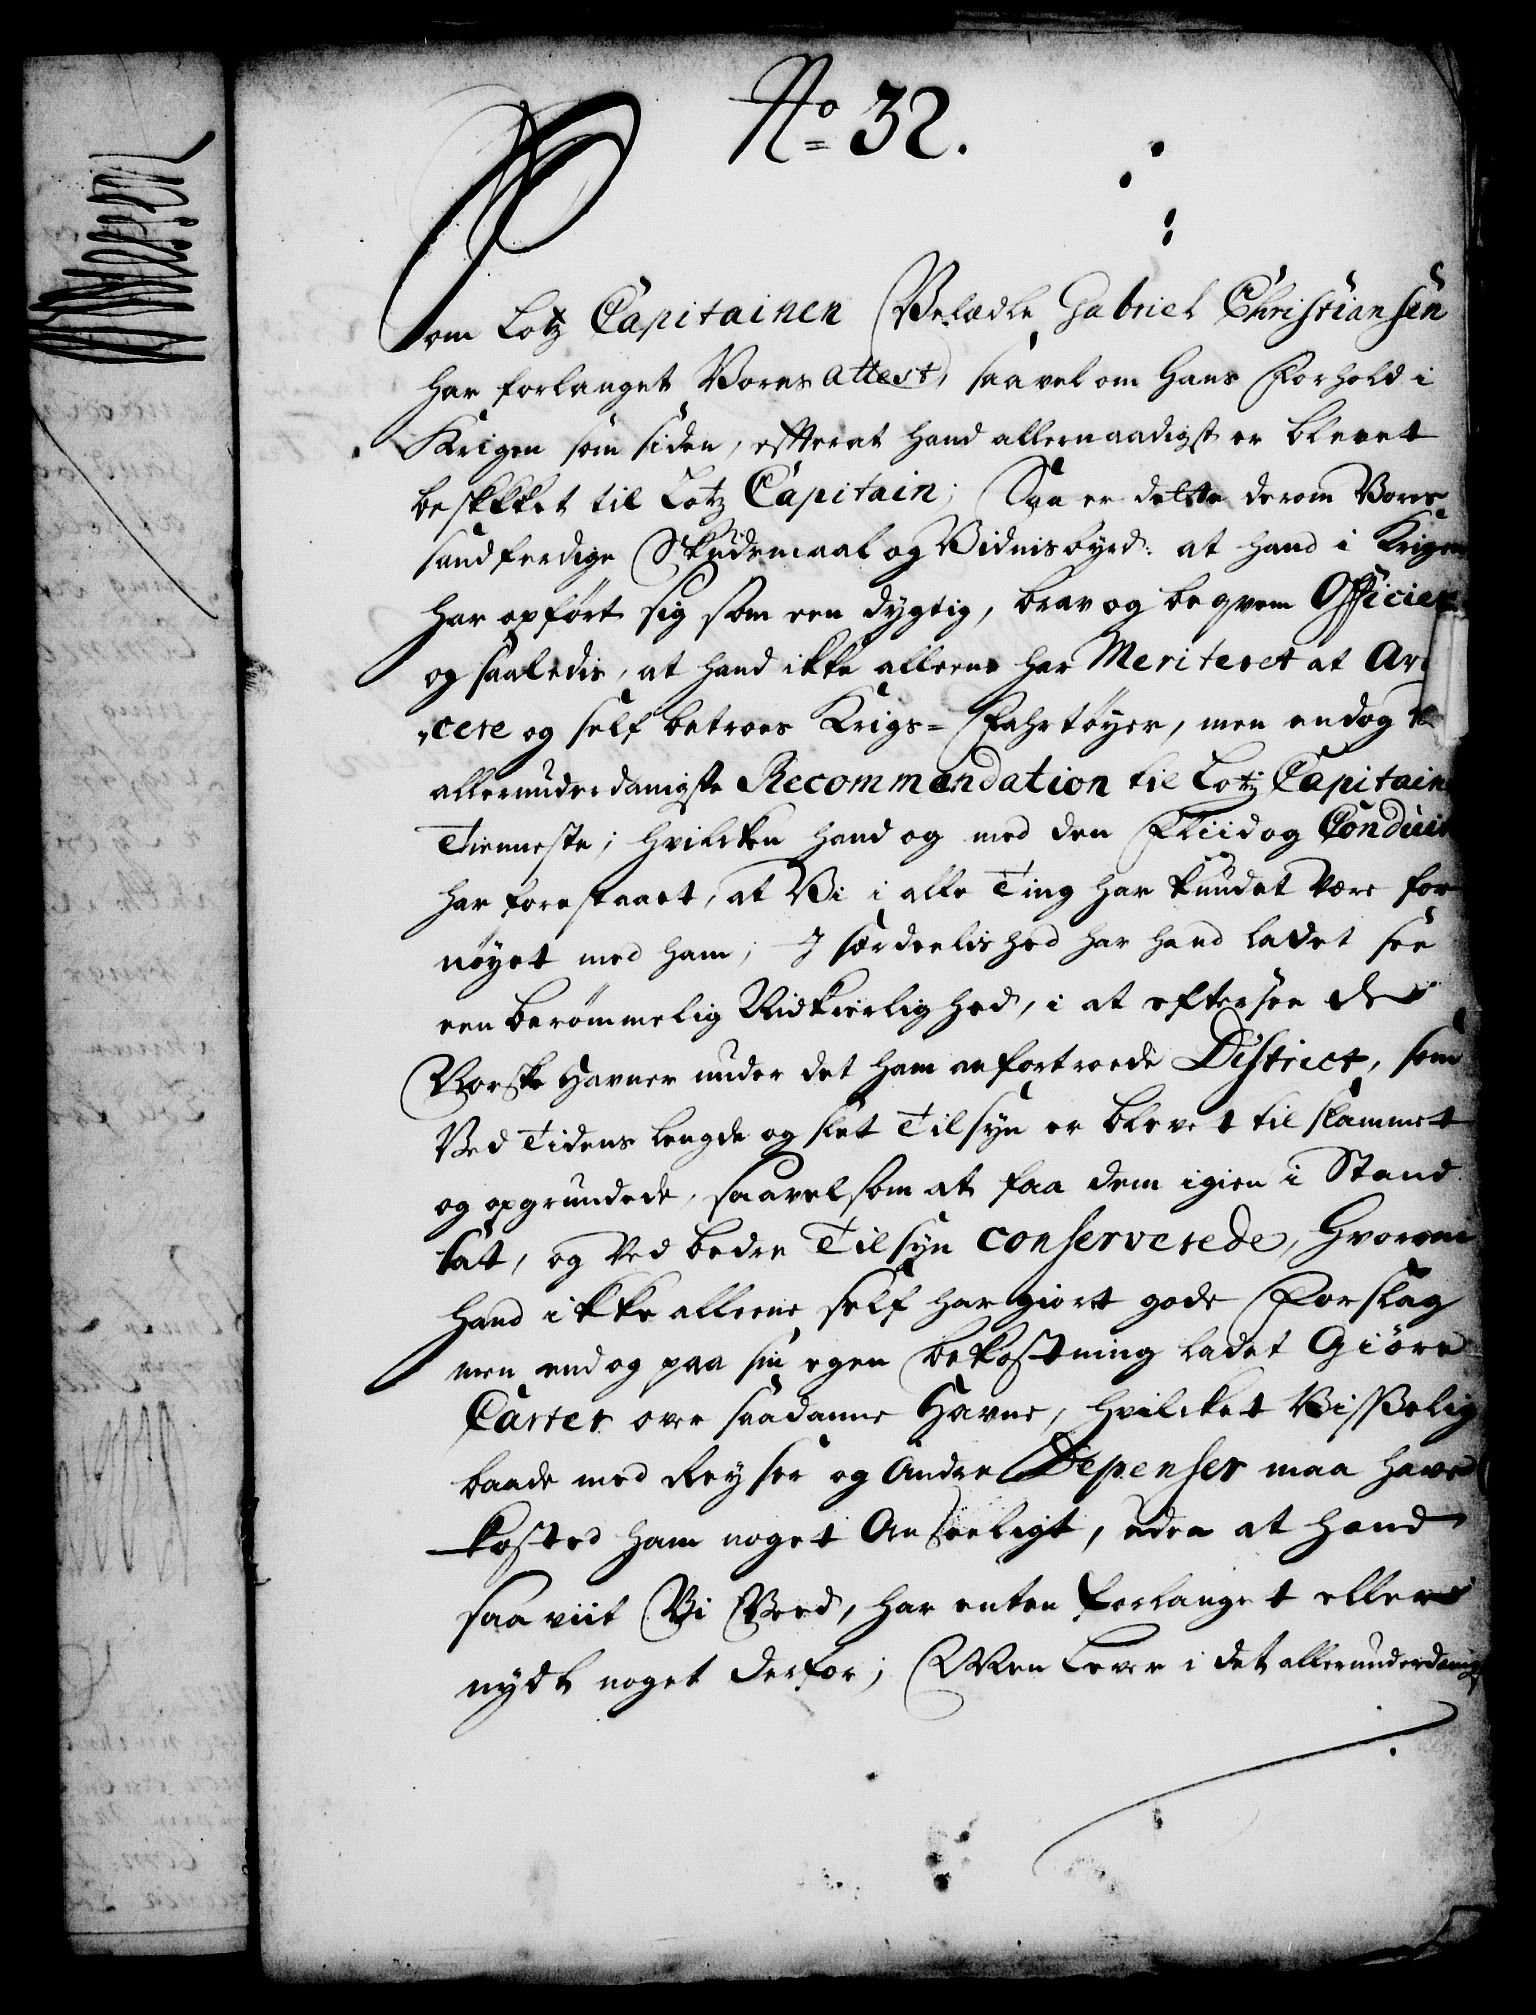 No 32.
Som Lotz Capitainen Velædle Gabriel Christiansen
har forlanget Vores Attest, saavel om Hans Forhold i
Krigen som siden, effterat hand allernaadigst er blevet
beskikket til Lotz Capitain; Saa er dette derom Vores
sandferdige Skudsmaal og Vidnisbyrd: at hand i Krigen
har opført sig som een dygtig, brav og beqvem Officier
og saaledis, at hand ikke alleene har Meriteret at
cere og self betroes Krigs=Fahrtøyer, men endog
allerunderdanigste Recommendation til Lotz Capitain
Tienneste; hvilcken hand og med den Fliid og Conduit
har forestaaet, at Vi i alle Ting har kundet være for
nøyet med ham; I særdeelished har hand ladet see
een berømmelig Nidkierlighed, i at eftersee de
Norske Havner under det ham anfortroede District, som
Ved Tidens lengde og slet Tilsyn er blevet tilslammet
og opgrundede, saavelsom at faa dem igien i Stand
sat, og ved bedre Tilsyn conserverede, Hvorom
hand ikke alleene self har giort gode Forslag
men endog paa sin egen bekostning ladet Giøre
Carter over saadanne Havne, hvilcket Visselig
baade med Reyser og Andre Depenser maa have
kosted ham noget Anseeligt, uden at hand
saa viit Vi Veed, har enten forlanget eller
nydt noget derfor; Men lever i det allerunderdanigst